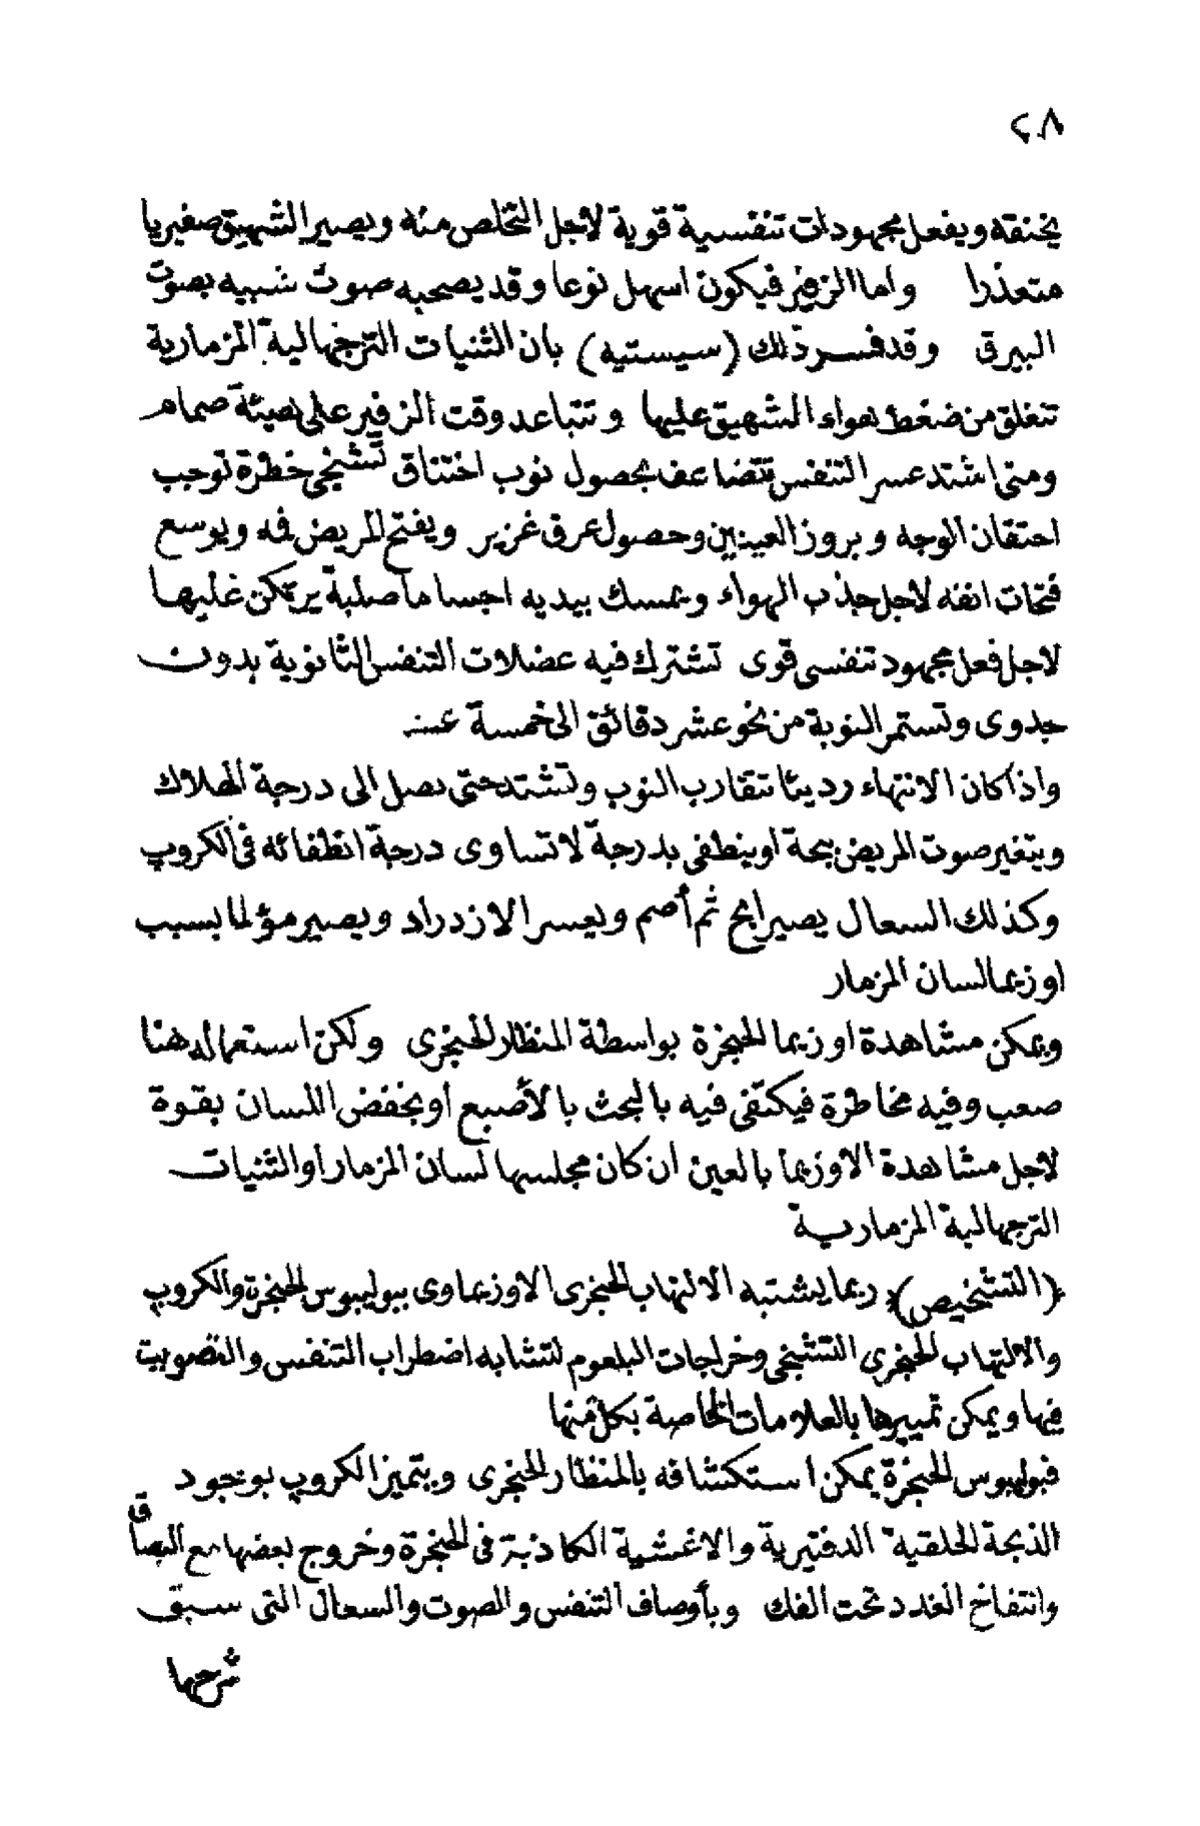 ٢٠٨
يخنقه ويفعل مجهودات تنفسية قوية لاجل التخلص منه ويصير الشهيق صفيريا
متعذرا واما الزفير فيكون اسهل نوعا وقد يصحبه صوت شبيه بصوت
البيرق وقد فسر ذلك (سيستيه) بان الثنيات الترجهالية المزمارية
تنغلق من ضغط هواء الشهيق عليها وتتباعد وقت الزفير على هيئة صمام
ومتى اشتد عسر التنفس تتضاعف بحصول نوب اختناق تشنجى خطرة توجب
احتقان الوجه وبروز العينين وحصول عرق غزير ويفتح المريض فه ويوسع
فتحات انفه لاجل جذب الهواء ويمسك بيديه اجساما صلبة يرتكن عليها
لاجل فعل مجهود تنفسى قوى تشترك فيه عضلات التنفس الثانوية بدون
جدوى وتستمر النوبة من نحو عشر دقائق الى خمسة عشر
واذا كان الانتهاء رديئا تتقارب النوب وتشتد حتى تصل الى درجة الهلاك
ويتغير صوت المريض ببحة او ينطفى بدرجة لا تساوى درجة انطفائه فى الكروب
وكذلك السعال يصير ابح ثم أصم ويعسر الازدراد ويصير مؤلما بسبب
اوزيما لسان المزمار
ويمكن مشاهدة اوزيما الحنجرة بواسطة المنظار الحنجرى ولكن استعماله هنا
صعب وفيه مخاطرة فيكتفى فيه بالبحث بالأصبع أو بخفض اللسان بقوة
لاجل مشاهدة الاوزيما بالعين ان كان مجلسها لسان المزمار أو الثنيات
الترجهالية المزمارية
(التشخيص) ربما يشتبه الالتهاب الحنجرى الاوزيماوى ببوليبوس الحنجرة والكروب
والالتهاب الحنجرى التشنجى وخراجات البلعوم لتشابه اضطراب التنفس والتصويت
فيها ويمكن تمييزها بالعلامات الخاصة بكل منها
فبوليبوس الحنجرة يمكن استكشافه بالمنظار الحنجرى ويتميز الكروب بوجود
الذبحة الحلقية الدفتيرية والاغشية الكاذبة فى الحنجرة وخروج بعضها مع البصاق
وانتفاخ الغدد تحت الفك وبأوصاف التنفس والصوت والسعال التى سبق
شرحها